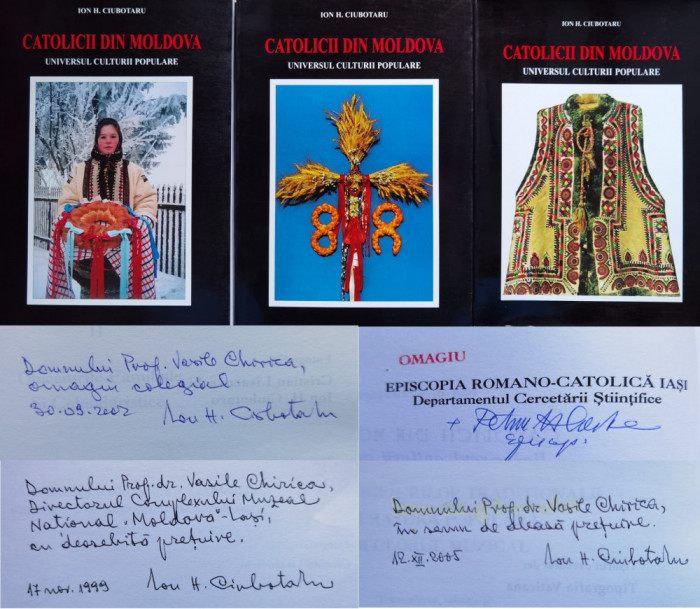 ION H. CIUBOTARU
CATOLICII DIN MOLDOVA
UNIVERSUL CULTURII POPULARE
ION H. CIUBOTARU
CATOLICII DIN MOLDOVA
UNIVERSUL CULTURII POPULARE
ION H. CIUBOTARU
CATOLICII DIN MOLDOVA
UNIVERSUL CULTURII POPULARE
Domnului Prof. Vasile Chirica,
omagiu colegial.
30.09.2002 Ion H. Ciubotaru
OMAGIU
EPISCOPIA ROMANO-CATOLICĂ IAȘI
Departamentul Cercetării Științifice
+ Petru
Episcop.
Domnului Prof. dr. Vasile Chirica,
Directorul Complexului Muzeal
Național „Moldova”-Iași,
cu deosebită prețuire.
17 nov. 1999 Ion H. Ciubotaru
Domnului Prof. dr. Vasile Chirica,
în semn de aleasă prețuire.
12.XII.2005 Ion H. Ciubotaru